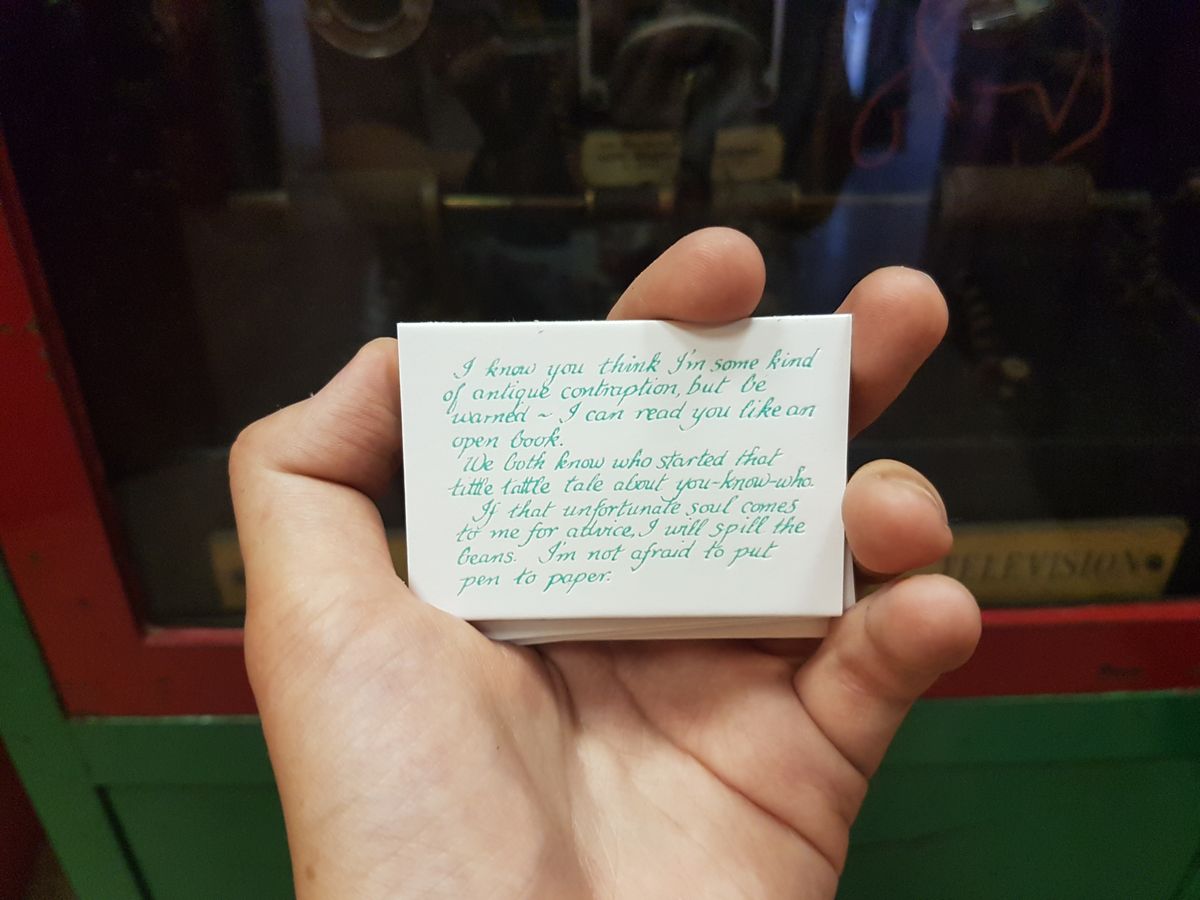 I know you think I'm some kind
of antique contraption, but be
warned ~ I can read you like an
open book.
We both know who started that
tittle tattle tale about you-know-who.
If that unfortunate soul comes
to me for advice, I will spill the
beans. I'm not afraid to put
pen to paper.
TELEVISION